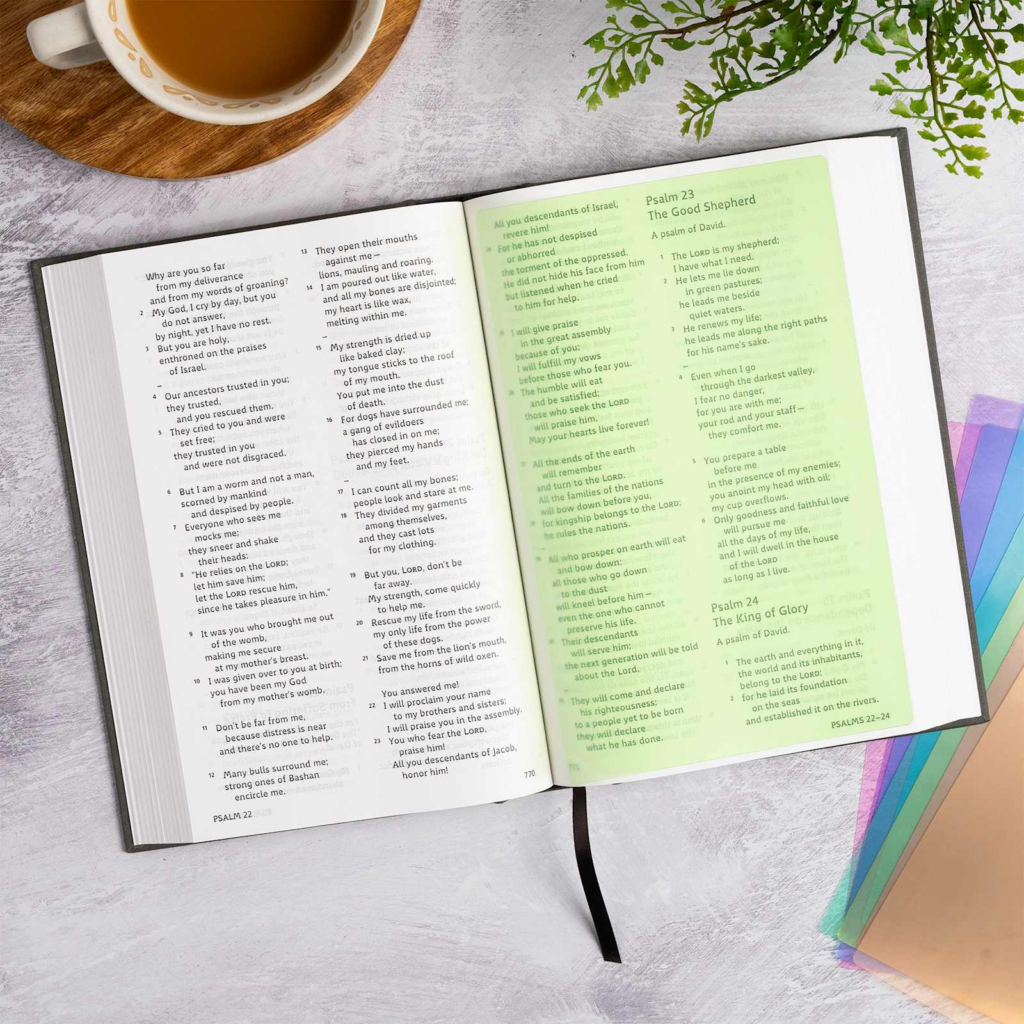 Why are you so far
from my deliverance
and from my words of groaning?
2 My God, I cry by day, but you
do not answer,
by night, yet I have no rest.
3 But you are holy,
enthroned on the praises
of Israel.
–
4 Our ancestors trusted in you;
they trusted,
and you rescued them.
5 They cried to you and were
set free;
they trusted in you
and were not disgraced.
6 But I am a worm and not a man,
scorned by mankind
and despised by people.
7 Everyone who sees me
mocks me;
they sneer and shake
their heads:
8 "He relies on the LORD;
let him save him;
let the LORD rescue him,
since he takes pleasure in him."
9 It was you who brought me out
of the womb,
making me secure
at my mother's breast.
10 I was given over to you at birth;
you have been my God
from my mother's womb.
11 Don't be far from me,
because distress is near
and there's no one to help.
12 Many bulls surround me;
strong ones of Bashan
encircle me.
PSALM 22
13 They open their mouths
against me –
lions, mauling and roaring.
14 I am poured out like water,
and all my bones are disjointed;
my heart is like wax,
melting within me.
–
15 My strength is dried up
like baked clay;
my tongue sticks to the roof
of my mouth.
You put me into the dust
of death.
16 For dogs have surrounded me;
a gang of evildoers
has closed in on me;
they pierced my hands
and my feet.
–
17 I can count all my bones;
people look and stare at me.
18 They divided my garments
among themselves,
and they cast lots
for my clothing.
19 But you, LORD, don't be
far away.
My strength, come quickly
to help me.
20 Rescue my life from the sword,
my only life from the power
of these dogs.
21 Save me from the lion's mouth,
from the horns of wild oxen.
You answered me!
22 I will proclaim your name
to my brothers and sisters;
I will praise you in the assembly.
23 You who fear the LORD,
praise him!
All you descendants of Jacob,
honor him!
770
All you descendants of Israel,
revere him!
For he has not despised
or abhorred
the torment of the oppressed.
He did not hide his face from him
but listened when he cried
to him for help.
I will give praise
in the great assembly
because of you;
I will fulfill my vows
before those who fear you.
The humble will eat
and be satisfied;
those who seek the LORD
will praise him.
May your hearts live forever!
All the ends of the earth
will remember
and turn to the LORD.
All the families of the nations
will bow down before you,
for kingship belongs to the LORD;
he rules the nations.
–
All who prosper on earth will eat
and bow down;
all those who go down
to the dust
will kneel before him –
even the one who cannot
preserve his life.
Their descendants
will serve him;
the next generation will be told
about the Lord.
–
They will come and declare
his righteousness;
to a people yet to be born
they will declare
what he has done.
Psalm 23
The Good Shepherd
A psalm of David.
1 The LORD is my shepherd;
I have what I need.
2 He lets me lie down
in green pastures;
he leads me beside
quiet waters.
3 He renews my life;
he leads me along the right paths
for his name's sake.
–
4 Even when I go
through the darkest valley,
I fear no danger,
for you are with me;
your rod and your staff –
they comfort me.
5 You prepare a table
before me
in the presence of my enemies;
you anoint my head with oil;
my cup overflows.
6 Only goodness and faithful love
will pursue me
all the days of my life,
and I will dwell in the house
of the LORD
as long as I live.
Psalm 24
The King of Glory
A psalm of David.
1 The earth and everything in it,
the world and its inhabitants,
belong to the LORD;
2 for he laid its foundation
on the seas
and established it on the rivers.
PSALMS 22–24